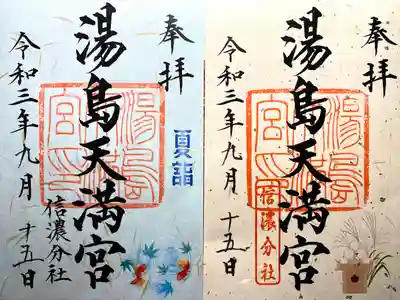 奉拝
湯島天満宮
夏詣
信濃分社
令和三年九月十五日
奉拝
湯島天満宮
信濃分社
令和三年九月十五日